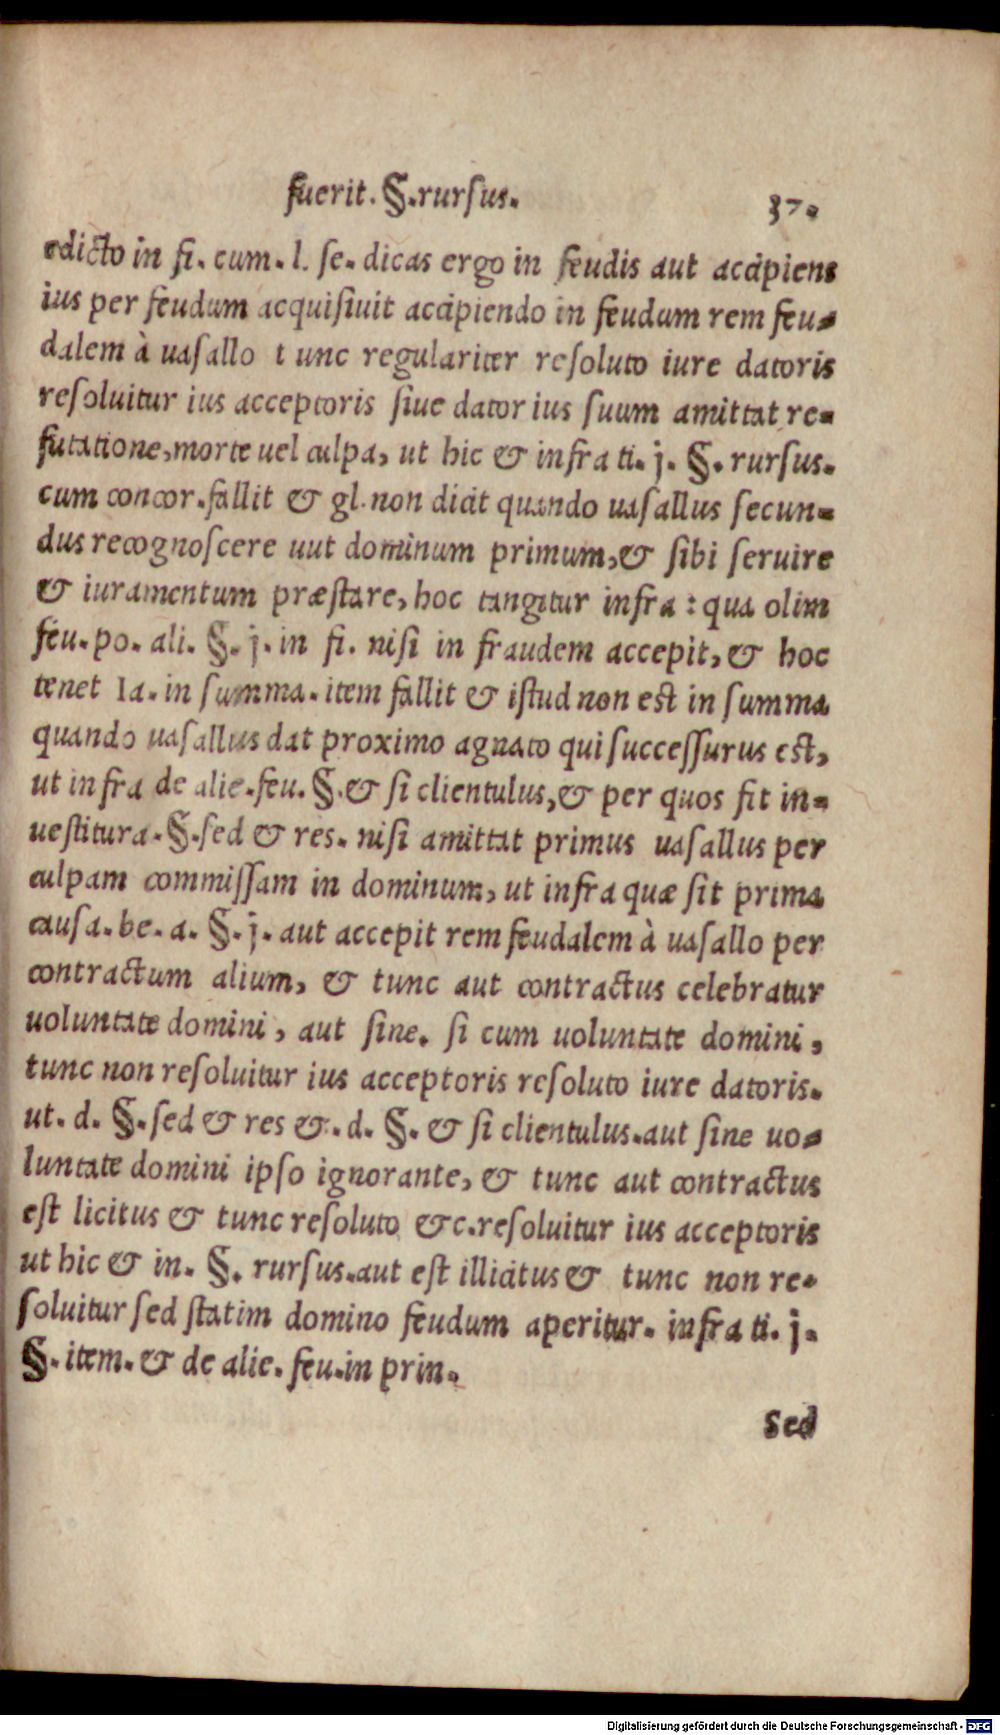 fuerit. §. rurſus. 37.
edicto in fi. cum. l. ſe. dicas ergo in feudis aut accipiens
ius per feudum acquiſiuit accipiendo in feudum rem feu-
dalem à uaſallo t unc regulariter reſoluto iure datoris
reſoluitur ius acceptoris ſiue dator ius ſuum amittat re-
futatione, morte uel culpa, ut hic & infra ti. j. §. rurſus.
cum concor. fallit & gl. non dicit quando uaſallus ſecun-
dus recognoſcere uut dominum primum, & ſibi ſeruire
& iuramentum præſtare, hoc tangitur infra : qua olim
feu. po. ali. §. j. in fi. niſi in fraudem accepit, & hoc
tenet Ia. in ſumma. item fallit & iſtud non est in ſumma
quando uaſallus dat proximo agnato qui ſucceſſurus est,
ut infra de alie. feu. §. & ſi clientulus, & per quos fit in-
ueſtitura. §. ſed & res. niſi amittat primus uaſallus per
culpam commiſſam in dominum, ut infra quæ ſit prima
cauſa. be. a. §. j. aut accepit rem feudalem à uaſallo per
contractum alium, & tunc aut contractus celebratur
uoluntate domini, aut ſine. ſi cum uoluntate domini,
tunc non reſoluitur ius acceptoris reſoluto iure datoris.
ut. d. §. ſed & res &. d. §. & ſi clientulus. aut ſine uo-
luntate domini ipſo ignorante, & tunc aut contractus
est licitus & tunc reſoluto &c. reſoluitur ius acceptoris
ut hic & in. §. rurſus. aut est illicitus & tunc non re-
ſoluitur ſed ſtatim domino feudum aperitur. infra ti. j.
§. item. & de alie. feu. in prin.
Sed
Digitalisierung gefördert durch die Deutsche Forschungsgemeinschaft - DFG